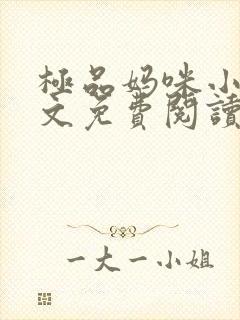 極品妈咪小
文免費閱讀
一大一小姐